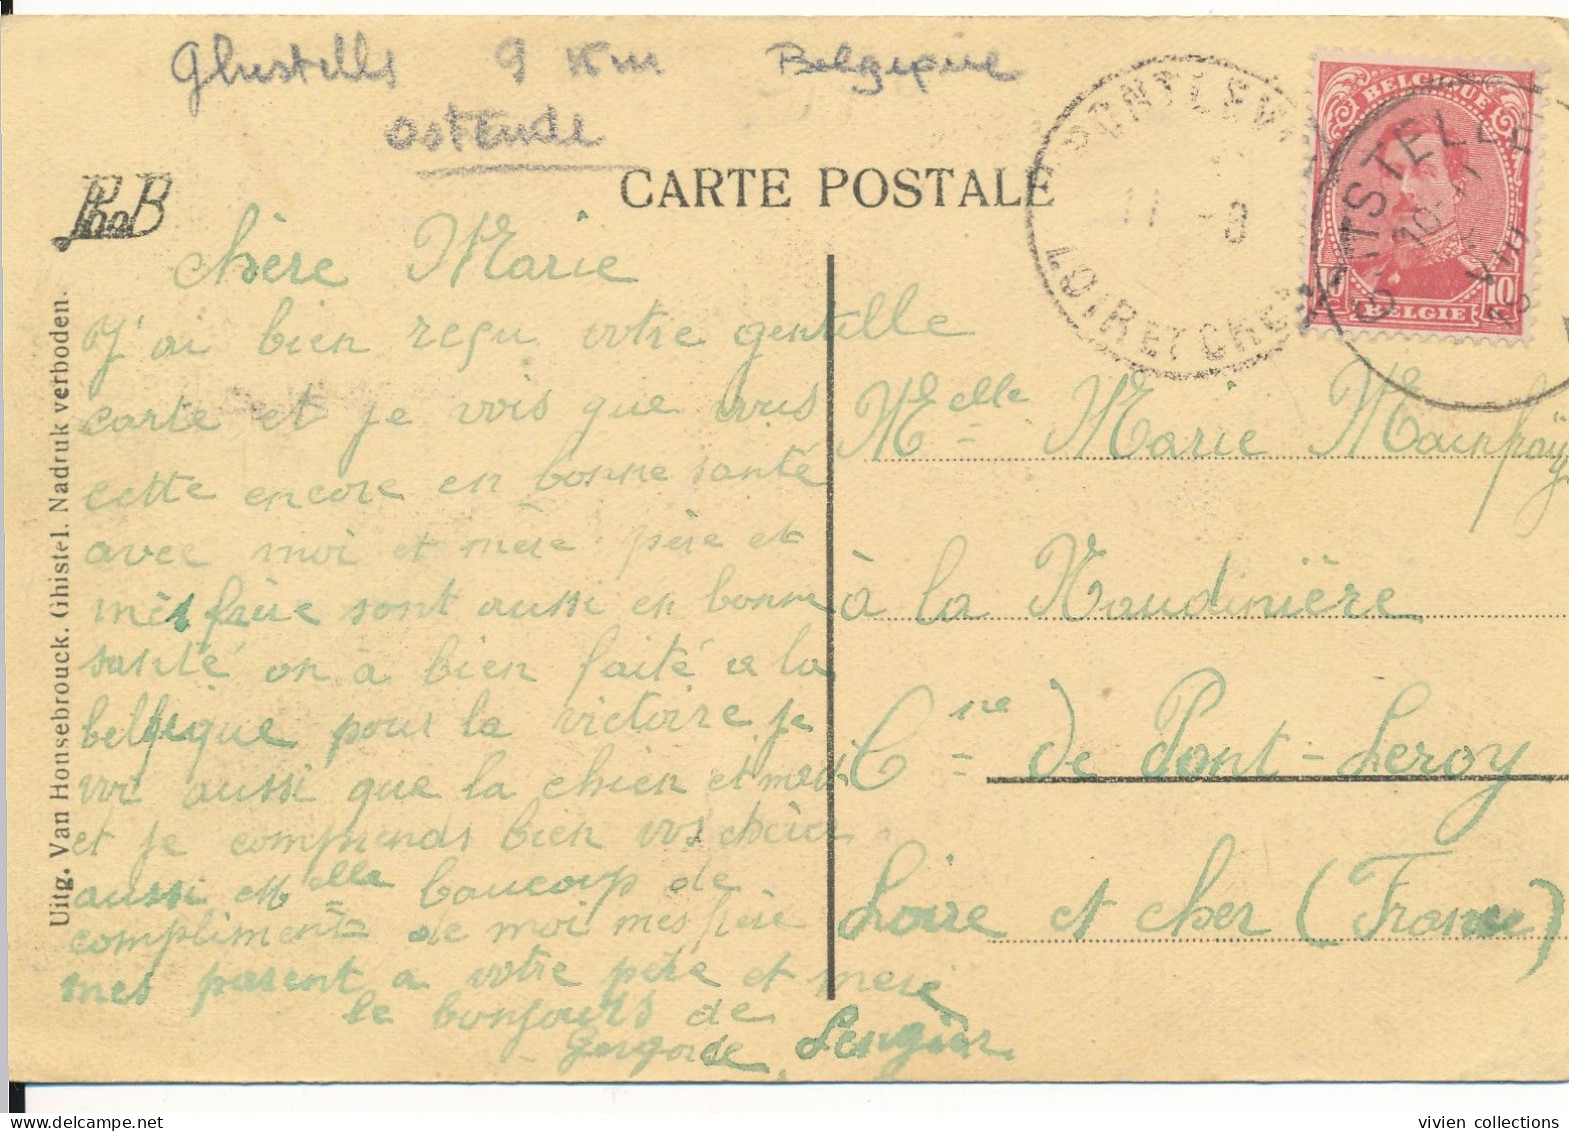 Ghistelle 9 Km Belgique
Ostende
PhoB
CARTE POSTALE
PONTLEVOY
11 -8
LOIR ET CHER
BELGIQUE
10 10
BELGIË
GHISTELLE
10-11
VIII
19
Uitg. Van Honsebrouck. Ghistel. Nadruk verboden.
chère Marie
J'ai bien reçu votre gentille
carte et je vois que vous
cette encore en bonne santé
avec moi et mère père et
mes frère sont aussi en bonne
santé on à bien faité a la
belgique pour la victoire je
voi aussi que la chien et
et je comprends bien vos
aussi et Melle baucoup de
compliment de moi mes père
mes parent a votre père et mere
le bonjours de
Lengier
Melle Marie
à la Naudinière
Cne de Pont-Leroy
Loire et cher (France)
vivien collections